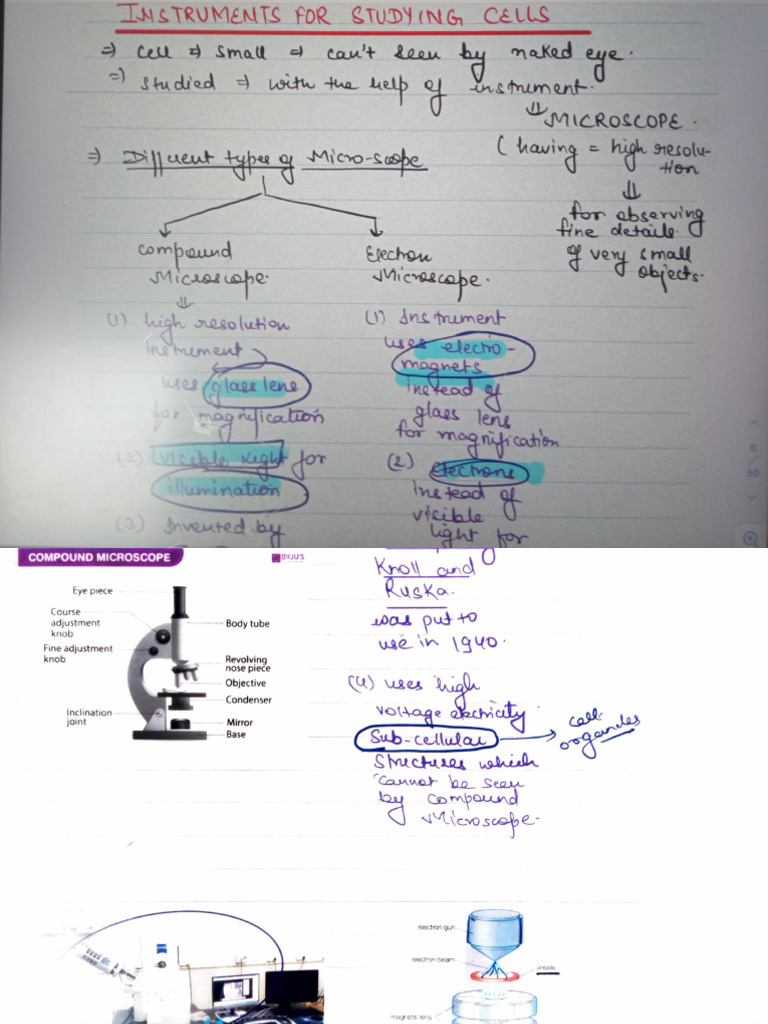 INSTRUMENTS FOR STUDYING CELLS
⇒ cell ⇒ small ⇒ can't seen by naked eye.
⇒ studied ⇒ with the help of instrument.
⇓
MICROSCOPE.
(having = high resolu-
tion
⇓
for observing
fine details
of very small
objects.
⇒ Different types of Micro-scope
Compound
Microscope.
⇓
(1) high resolution
instrument
uses glass lens
for magnification
(2) visible light for
illumination
(3) Invented by
Electron
Microscope.
(1) Instrument
uses electro-
magnets
instead of
glass lens
for magnification
(2) Electrons
instead of
visible
light for
6
50
COMPOUND MICROSCOPE
BYJU'S
Eye piece
Course
adjustment
knob
Fine adjustment
knob
Inclination
joint
Body tube
Revolving
nose piece
Objective
Condenser
Mirror
Base
Knoll and
Ruska.
was put to
use in 1940.
(4) uses high
voltage electricity.
Sub-cellular → cell organelles
structures which
cannot be seen
by compound
Microscope.
electron gun
electron beam
anode
magnetic lens